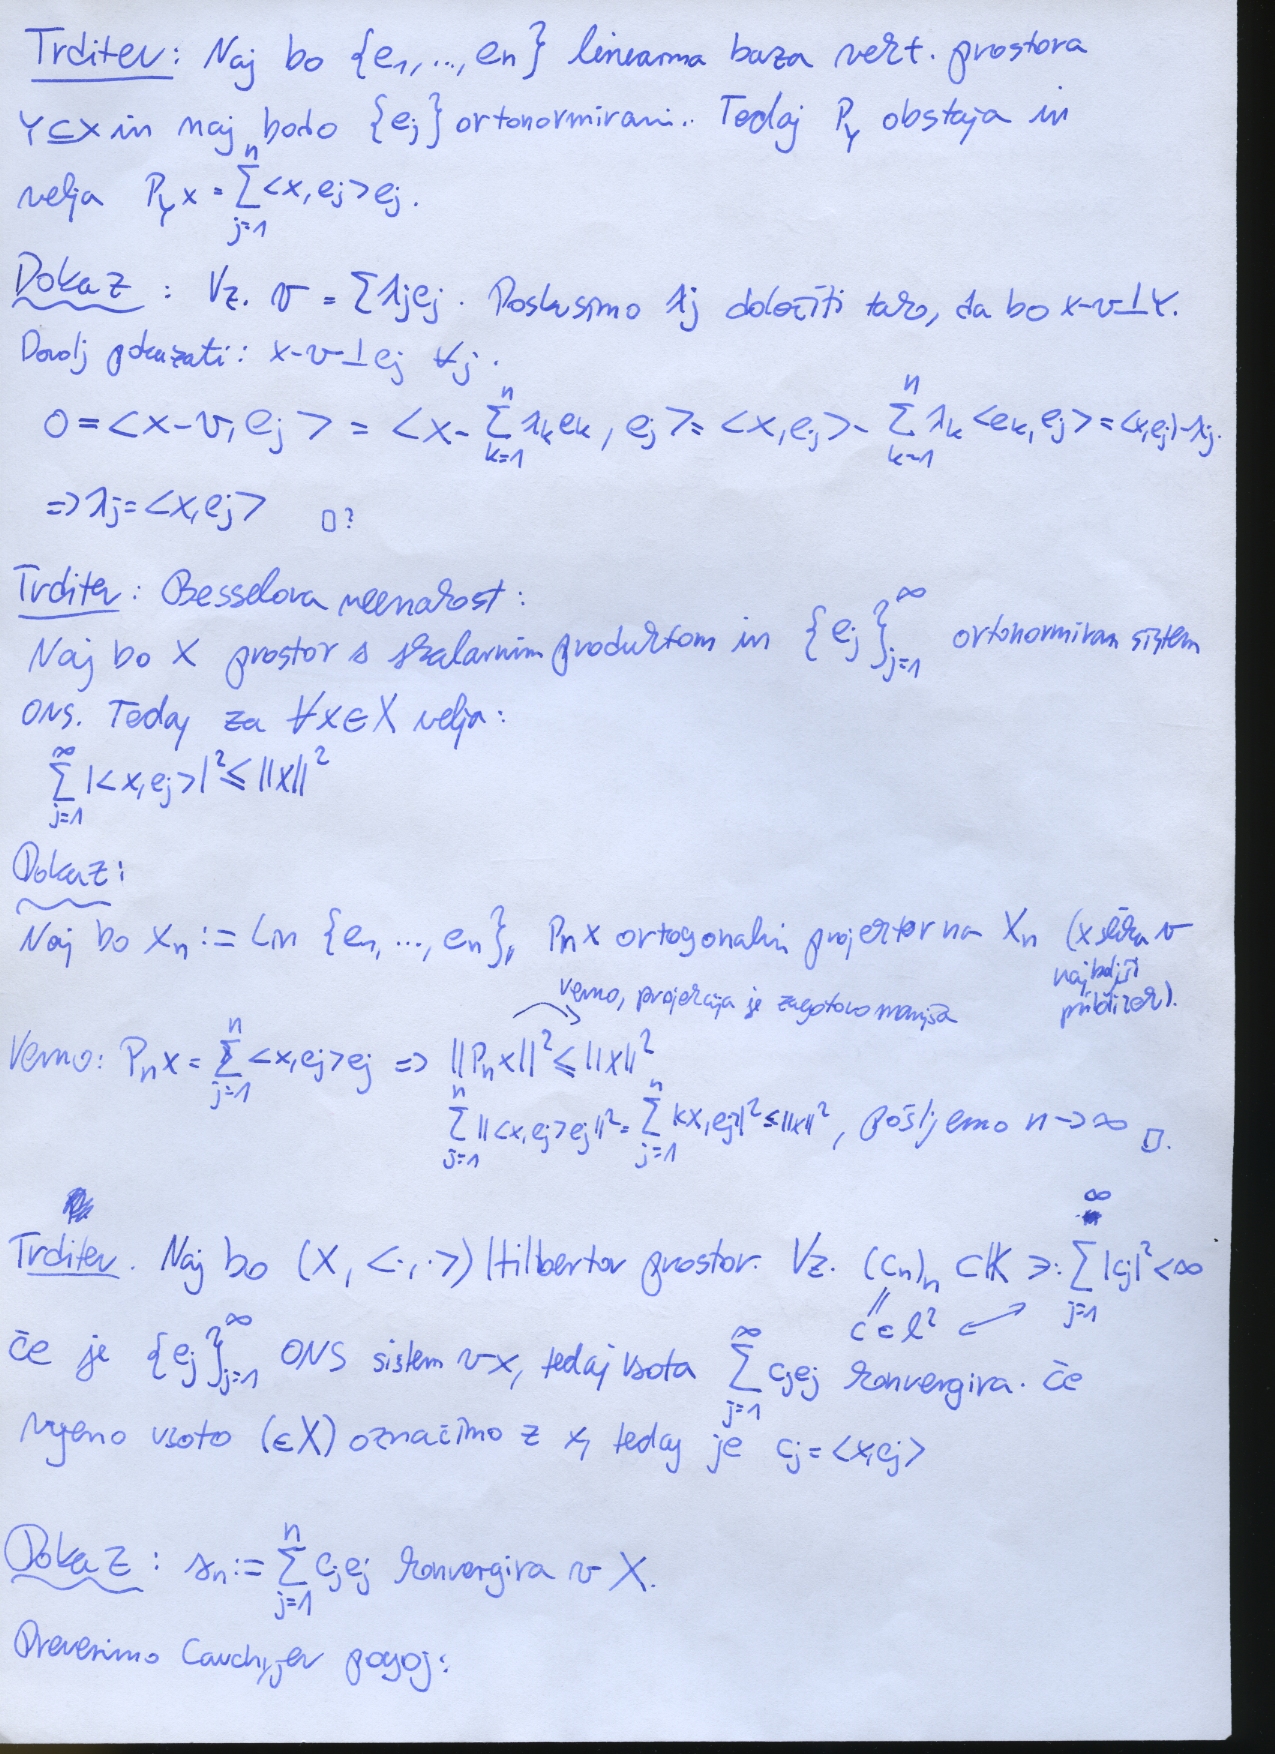 Trditev: Naj bo {e₁,...,eₙ} linearna baza vekt. prostora
Y⊆X in naj bodo {eⱼ} ortonormirani. Tedaj P_Y obstaja in
velja P_Y x = ∑_{j=1}^{n} <x,eⱼ>eⱼ.
Dokaz: Vz. v = ∑λⱼeⱼ. Poskusimo λⱼ določiti tako, da bo x-v⊥Y.
Dovolj pokazati: x-v⊥eⱼ ∀j.
0 = <x-v, eⱼ> = <x-∑_{k=1}^{n} λₖeₖ, eⱼ> = <x,eⱼ> - ∑_{k=1}^{n} λₖ<eₖ,eⱼ> = <x,eⱼ>-λⱼ.
=> λⱼ = <x,eⱼ> □?
Trditev: Besselova neenakost:
Naj bo X prostor s skalarnim produktom in {eⱼ}_{j=1}^{∞} ortonormiran sistem
ONS. Tedaj za ∀x∈X velja:
∑_{j=1}^{∞} |<x,eⱼ>|² ≤ ||x||²
Dokaz:
Naj bo Xₙ := Lin {e₁,...,eₙ}, Pₙx ortogonalni projektor na Xₙ (x slika v
najboljši
približek).
vemo, projekcija je zagotovo manjša
Vemo: Pₙx = ∑_{j=1}^{n} <x,eⱼ>eⱼ => ||Pₙx||² ≤ ||x||²
∑_{j=1}^{n} ||<x,eⱼ>eⱼ||² = ∑_{j=1}^{n} |<x,eⱼ>|² ≤ ||x||², pošljemo n->∞ □.
Trditev. Naj bo (X, <·,·>) Hilbertov prostor. Vz. (cₙ)ₙ ⊂ 𝕂 ∋: ∑_{j=1}^{∞} |cⱼ|² < ∞
|| c ∈ l² <->
če je {eⱼ}_{j=1}^{∞} ONS sistem v X, tedaj vsota ∑_{j=1}^{∞} cⱼeⱼ konvergira. če
njeno vsoto (∈X) označimo z x, tedaj je cⱼ = <x,eⱼ>
Dokaz: sₙ := ∑_{j=1}^{n} cⱼeⱼ konvergira v X.
Preverimo Cauchyjev pogoj: